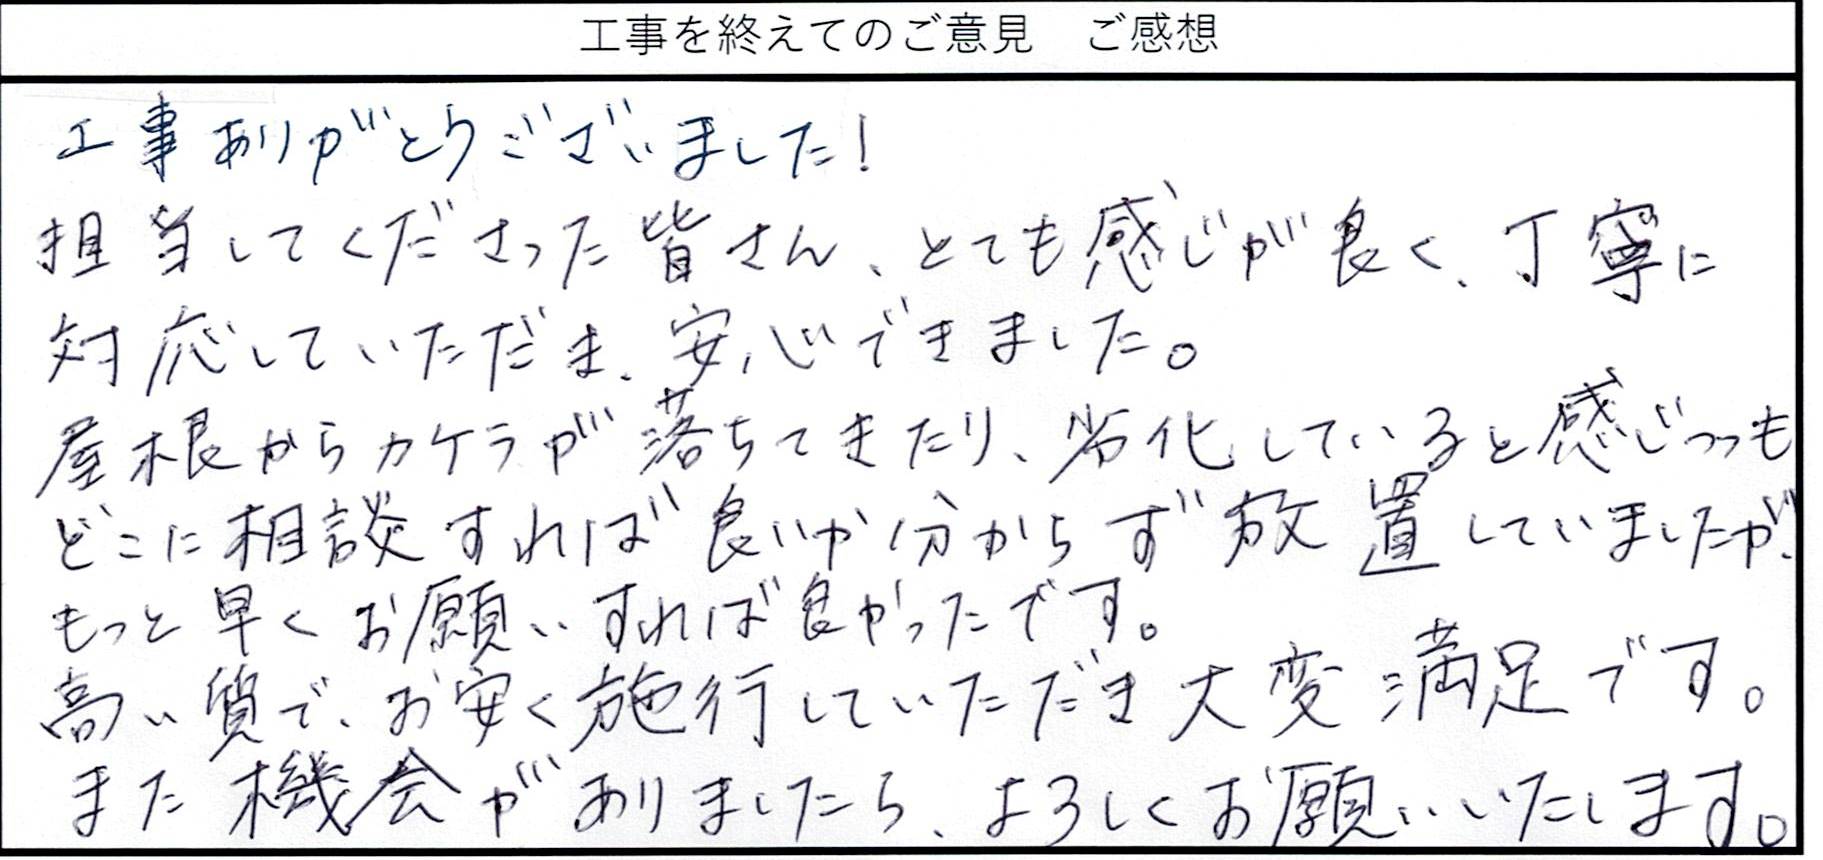 工事を終えてのご意見　ご感想
工事ありがとうございました!
担当してくださった皆さん、とても感じが良く、丁寧に
対応していただき、安心できました。
屋根からカケラが落ちてきたり、劣化していると感じつつも
どこに相談すれば良いか分からず放置していましたが、
もっと早くお願いすれば良かったです。
高い質で、お安く施行していただき大変満足です。
また機会がありましたら、よろしくお願いいたします。